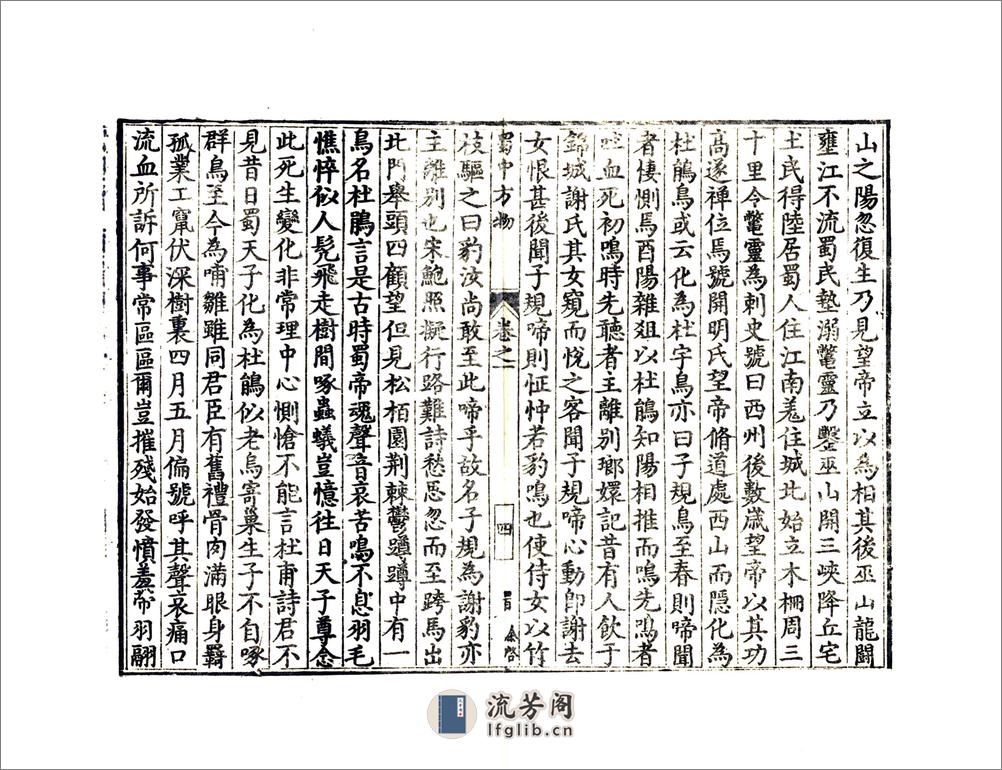 山之陽忽復生乃見望帝立以為相其後巫山龍鬪
壅江不流蜀民墊溺鼈靈乃鑿巫山開三峽降丘宅
土民得陸居蜀人住江南羗住城北始立木柵周三
十里令鼈靈為刺史號曰西州後數歲望帝以其功
高遂禪位焉號開明氏望帝脩道處西山而隱化為
杜鵑鳥或云化為杜宇鳥亦曰子規鳥至春則啼聞
者悽惻焉酉陽雜爼以杜鵑知陽相推而鳴先鳴者
吐血死初鳴時先聽者主離別瑯嬛記昔有人飲于
錦城謝氏其女窺而悅之客聞子規啼心動即謝去
女恨甚後聞子規啼則怔忡若豹鳴也使侍女以竹
蜀中方物 卷之二 四 余啓
枝驅之曰豹汝尚敢至此啼乎故名子規為謝豹亦
主離別也宋鮑照擬行路難詩愁思忽而至跨馬出
北門舉頭四顧望但見松栢園荆棘鬱蹲蹲中有一
鳥名杜鵑言是古時蜀帝魂聲音哀苦鳴不息羽毛
憔悴似人髡飛走樹間啄蟲蟻豈憶往日天子尊念
此死生變化非常理中心惻愴不能言杜甫詩君不
見昔日蜀天子化為杜鵑似老烏寄巢生子不自啄
群鳥至今為哺雛雖同君臣有舊禮骨肉滿眼身羇
孤業工竄伏深樹裏四月五月偏號呼其聲哀痛口
流血所訴何事常區區爾豈摧殘始發憤羞帶羽翮
流芳阁
lfglib.cn